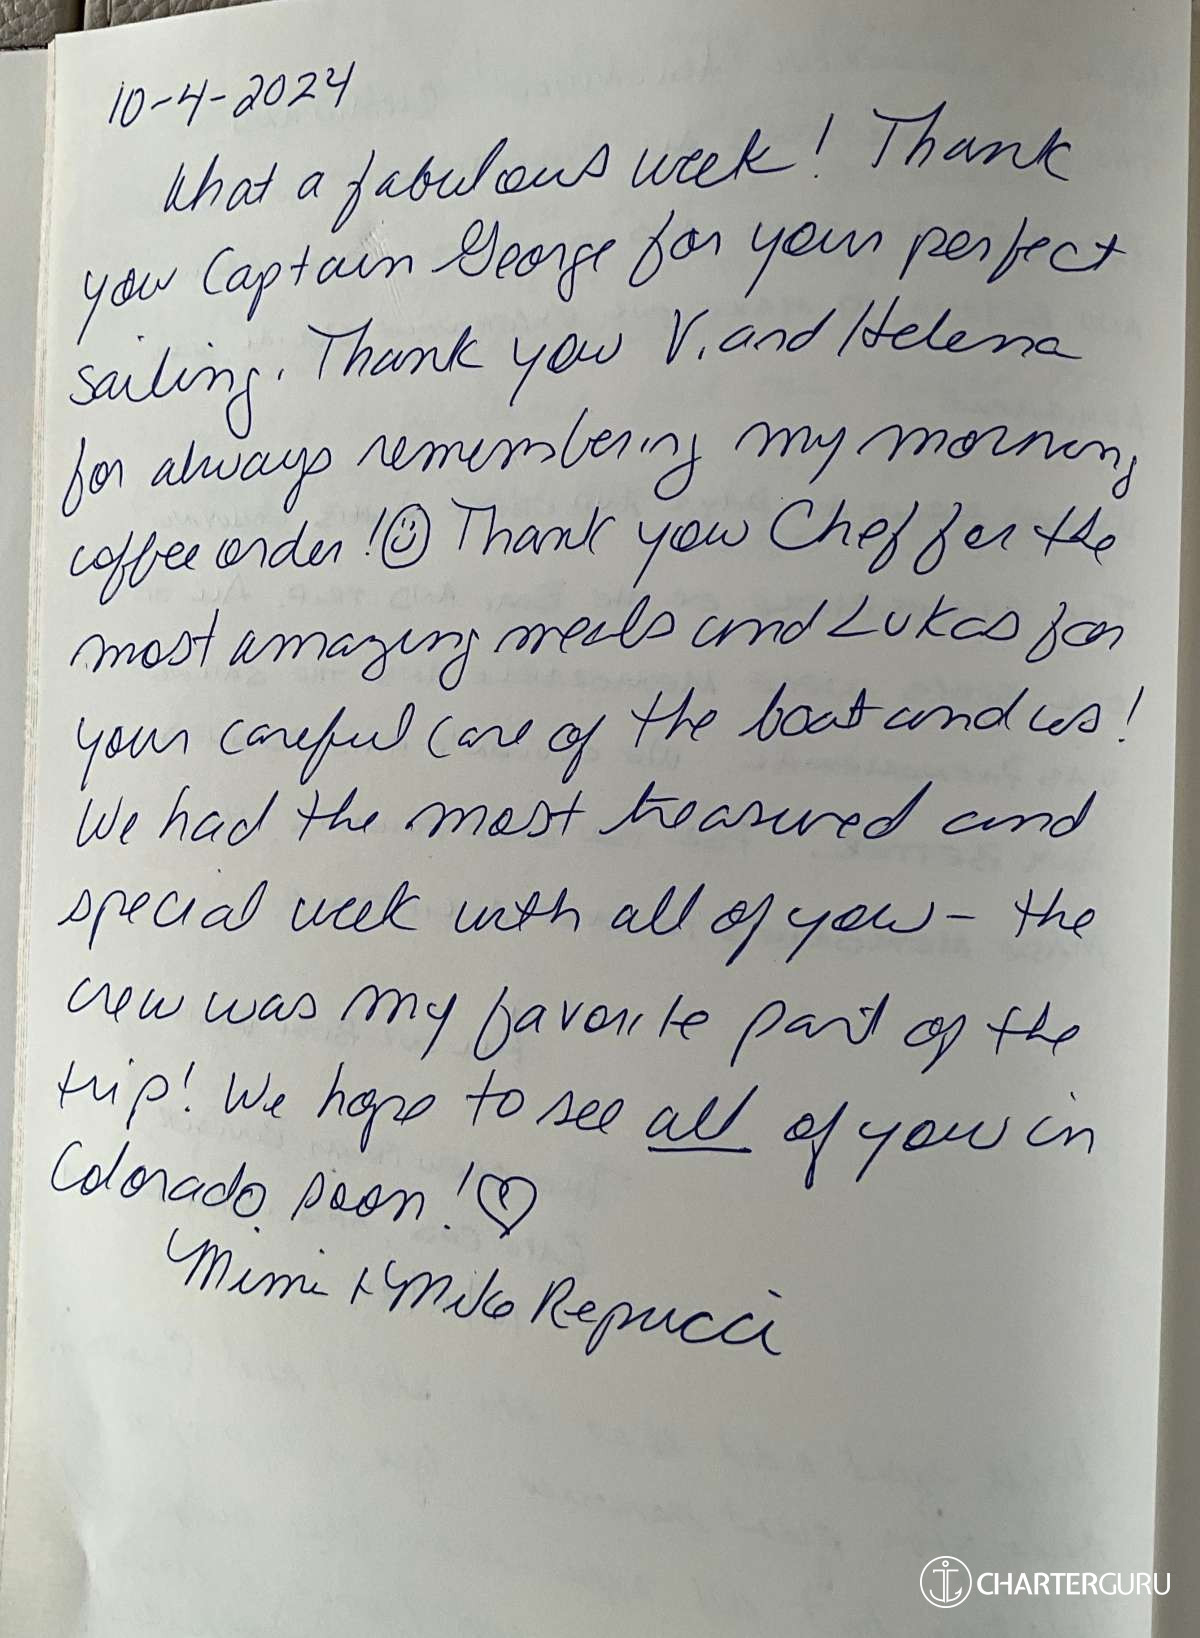 10-4-2024
What a fabulous week! Thank
you Captain George for your perfect
sailing. Thank you V. and Helena
for always remembering my morning
coffee order! ☺ Thank you Chef for the
most amazing meals and Lukas for
your careful care of the boat and us!
We had the most treasured and
special week with all of you - the
crew was my favorite part of the
trip! We hope to see all of you in
Colorado soon! ♡
Mimi + Mike Repucci
CHARTERGURU